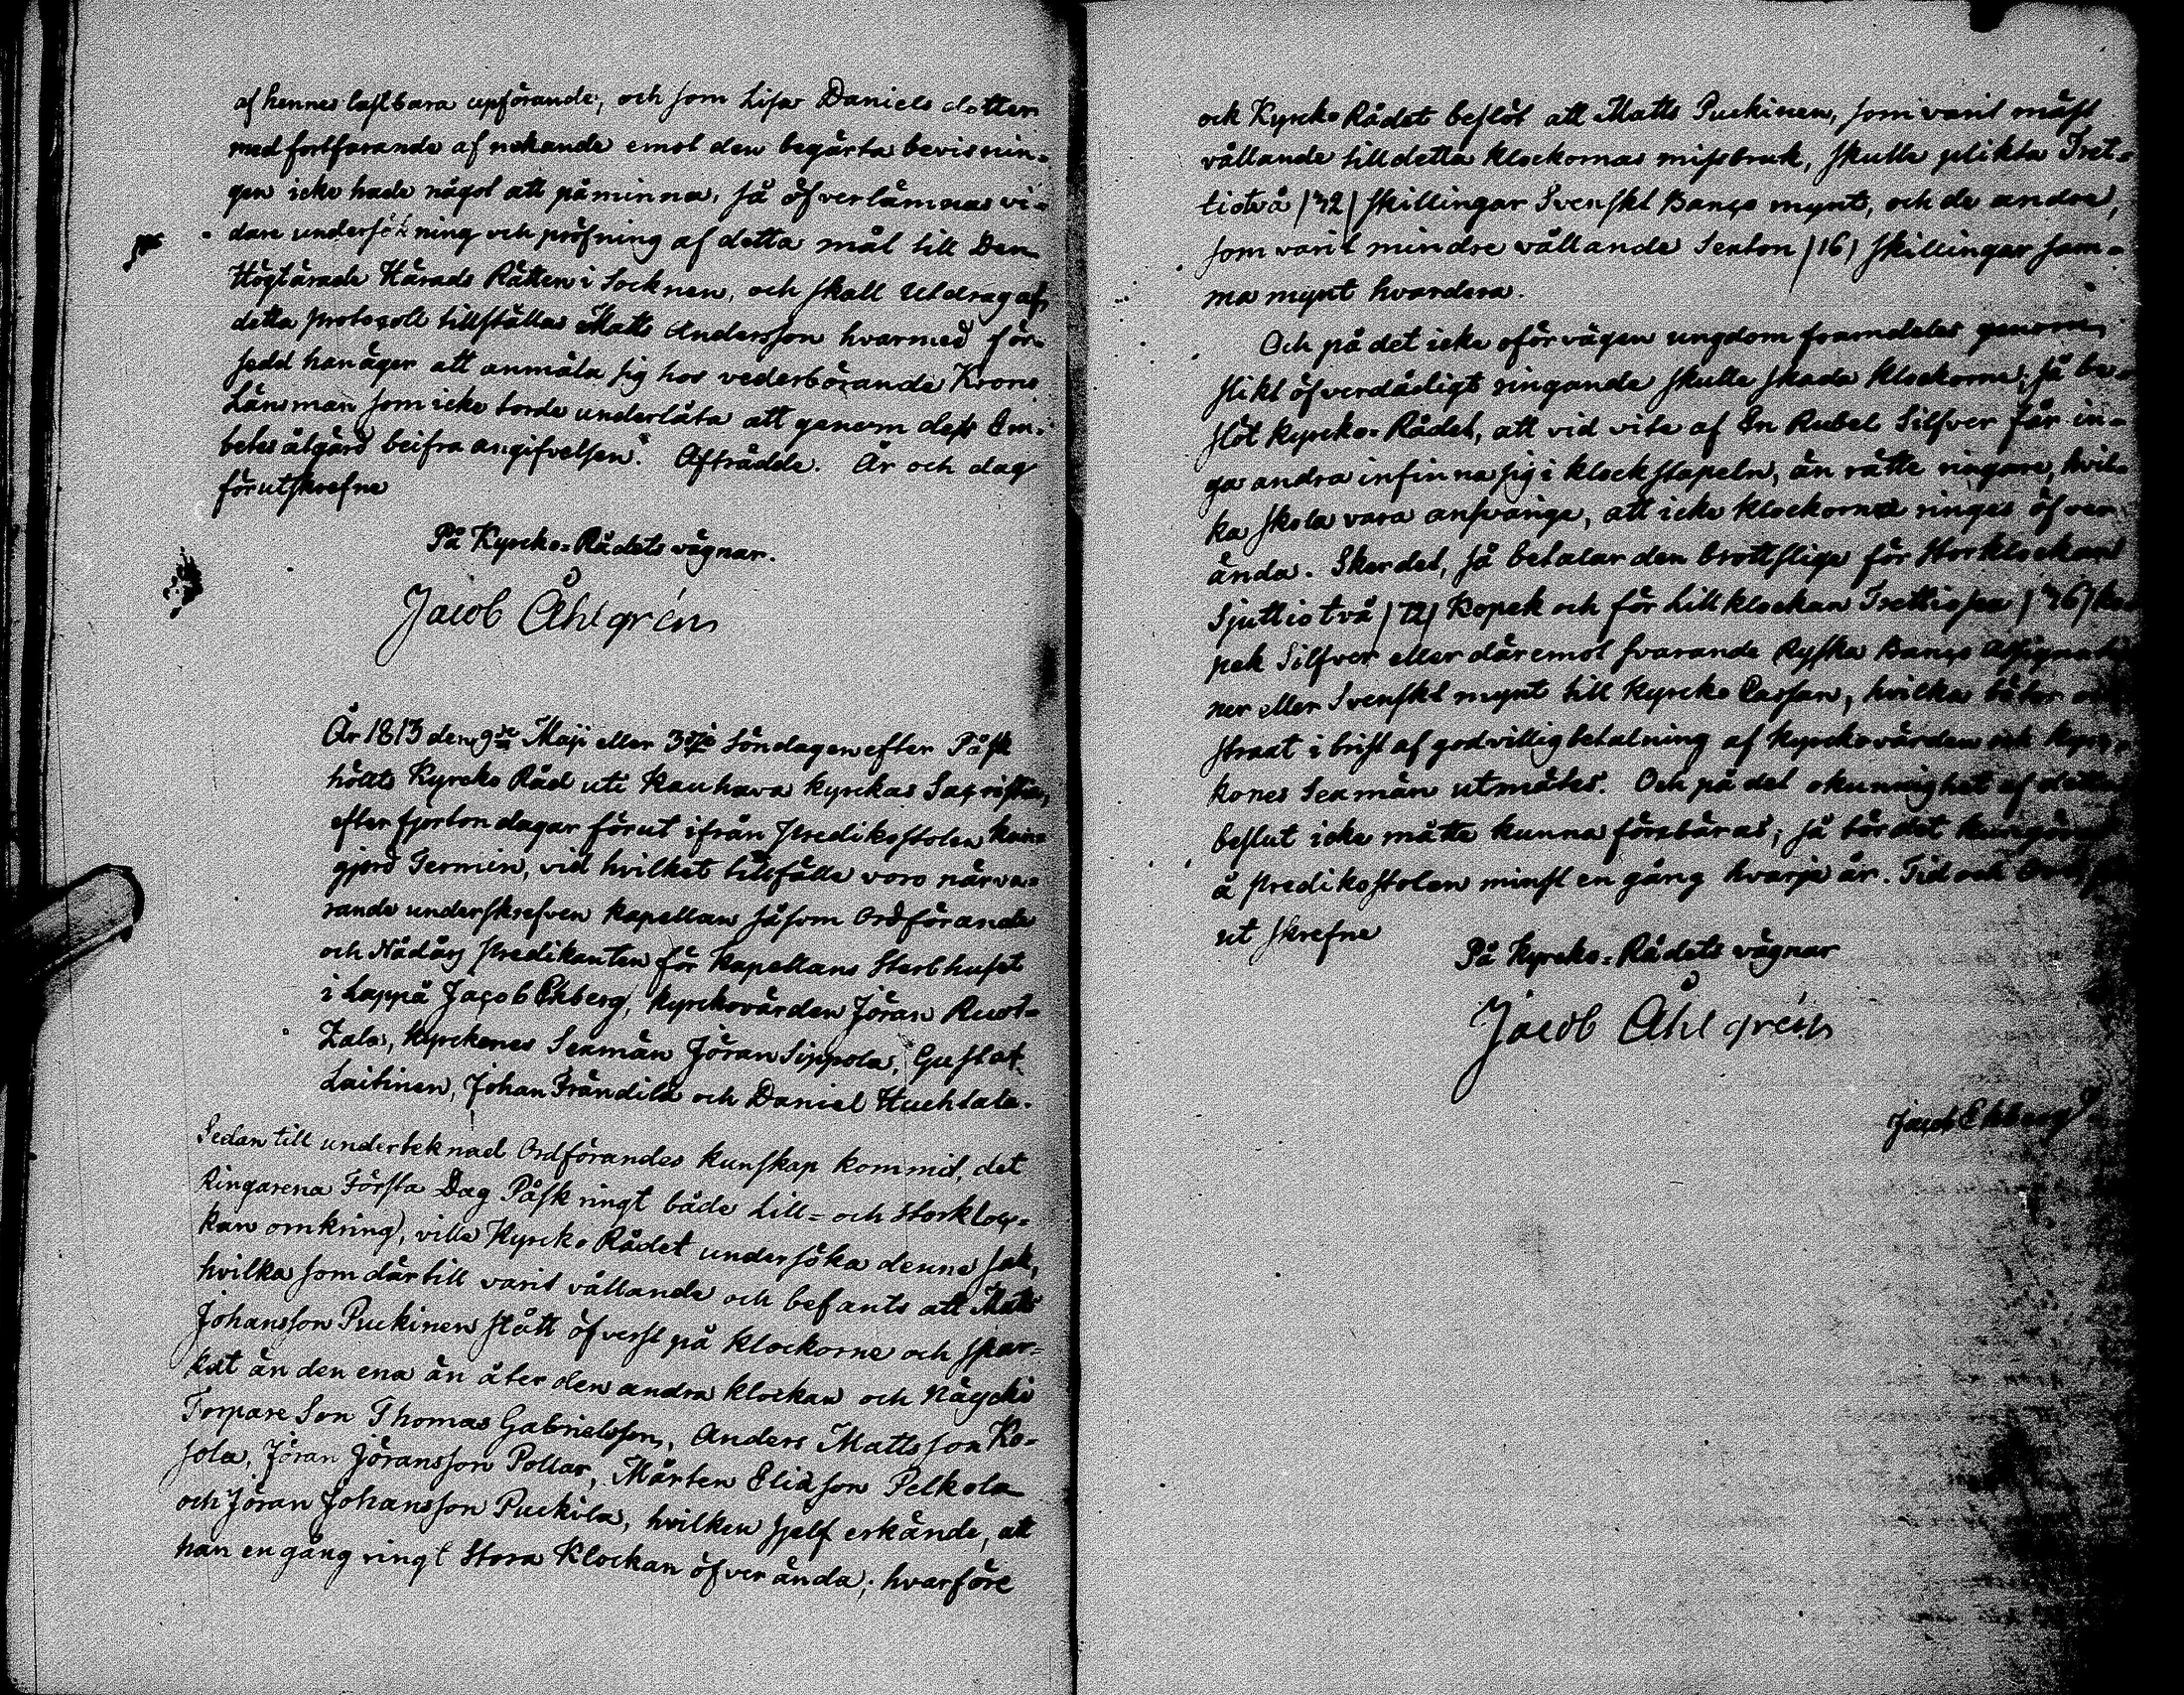 af hennes lastbara upförande, och som Lisa Daniels dotter
med fortfarande af nekande emot den begärta bevisnin=
gen icke hade något att påminna, så öfverlämnas vi=
dare undersökning och pröfning af detta mål till Den
Högtärade Härads Rätten i Socknen, och skall Utdrag af
detta protocoll tillställas Matts Andersson hvarmed för=
sedd han äger att anmäla sig hos vederbörande Krono
Länsman som icke torde underlåta att genom dess Em=
betes åtgärd beifra angifvelsen. Afträdde. År och dag
förutskrefne
På Kyrcko=Rådets vägnar.
Jacob Åhlgrén
År 1813 den 9de Maji eller 3dje Söndagen efter Påsk
hölts Kyrcko Råd uti Kauhava kyrckas Sacristia,
efter fjorton dagar förut ifrån Predikostolen kun=
gjord Termin, vid hvilket tilfälle voro närva=
rande underskrefven Kapellan såsom Ordförande
och Nådårs Predikanten för Kapellans Sterbhuset
i Lappå Jacob Ekberg, kyrckovärden Jöran Ruot=
zala, Kyrckones Sexmän Jöran Sippola, Gustaf
Laitinen, Johan Frändilä och Daniel Huchtala.
Sedan till underteknad Ordförandes kunskap kommit, det
Ringarena Första Dag Påsk ringt både Lill= och Storkloc=
kan omkring, ville Kyrcko Rådet undersöka denna sak,
hvilka som därtill varit vållande och befants att Matts
Johansson Puckinen stått öfverst på klockorne och spar=
kat än den ena än åter den andra klockan och Näycki
Torpare Son Thomas Gabrielsson, Anders Mattsson Ko=
sola, Jöran Jöransson Pollar, Mårten Eliason Pelkola
och Jöran Johansson Puckila, hvilken sjelf erkände, att
han en gång ringt Stora Klockan öfver ända; hvarföre
ock Kyrcko Rådet beslöt att Matts Puckinen, som varit mäst
vållande till detta klockornas missbruk, skulle plikta Tret=
tiotvå /32/ skillingar Svenskt Banco mynt, och de andre,
som varit mindre vållande Sexton /16/ skillingar sam=
ma mynt hvardera.
Och på det icke oförvägen ungdom framdeles genom
slikt öfverdådigt ringande skulle skada klockorna, så be=
slöt kyrcko=Rådet, att vid vite af En Rubel Silfver får in=
ga andra infinna sig i klockstapeln, än rätte ringare, hvil=
ka skola vara ansvarige, att icke klockorna ringes öfver
ända. Sker det, så betalar den brottslige för Storklockan
Sjuttiotvå /72/ Kopek och för Lillklockan Trettiosex /36/ ko=
pek Silfver eller däremot svarande Ryska Banco Assignatio
ner eller Svenskt mynt till kyrcko Cassan, hvilka böter
straxt i brist af godvillig betalning af kyrckovärden och kyrc=
kones Sexmän utmätes. Och på det okunnighet af detta
beslut icke måtte kunna förebäras, så bör det kungöras
å predikostolen minst en gång hvarje år. Tid och Ort
ut skrefne
På kyrcko=Rådets vägnar
Jacob Åhlgrén
Jacob Ekberg